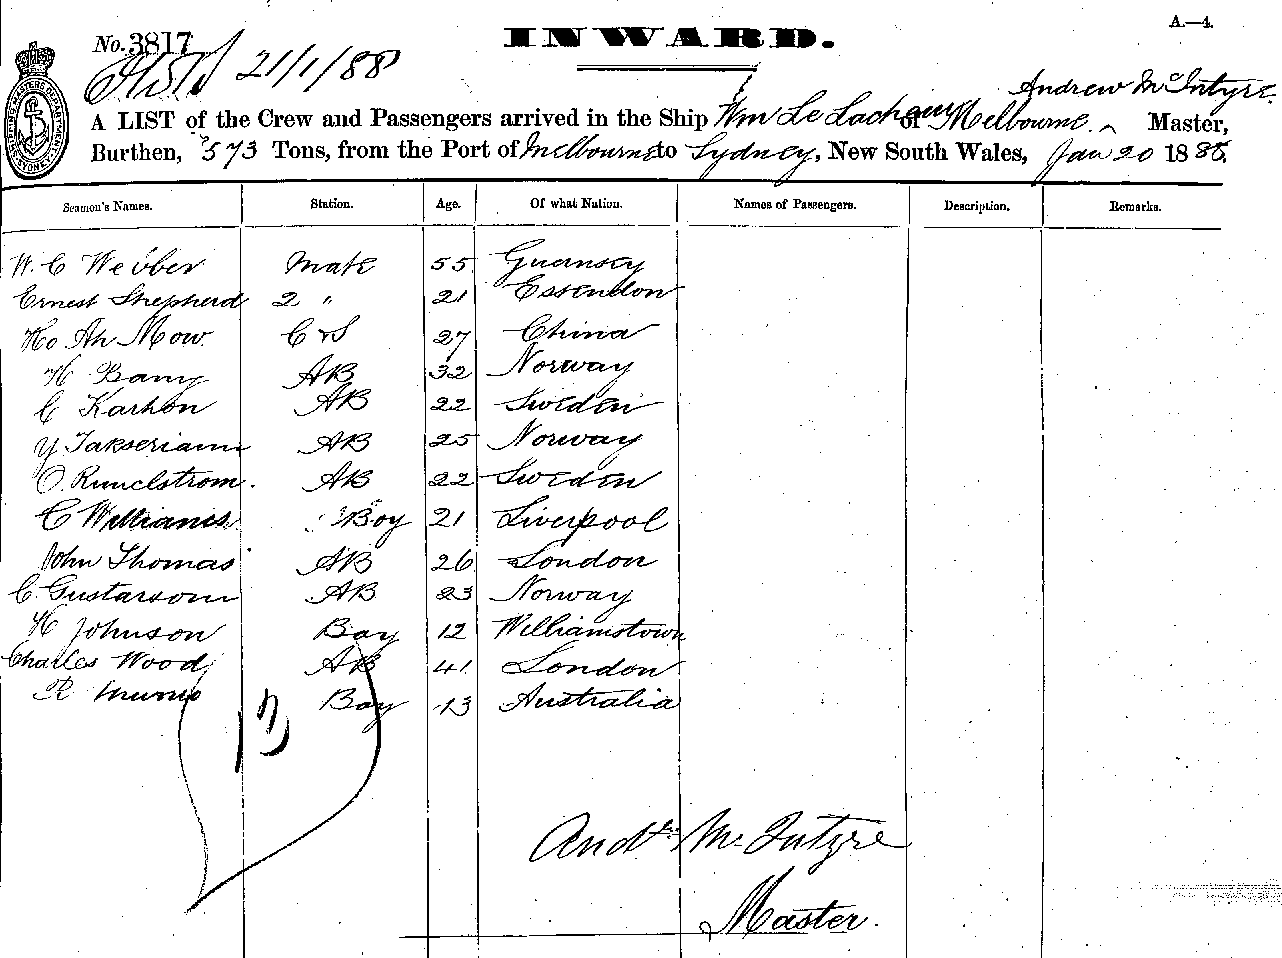 A.—4.
No. 3817
INWARD.
21/1/88
Andrew McIntyre
A LIST of the Crew and Passengers arrived in the Ship Wm Le Lacheur of Melbourne Master,
Burthen, 573 Tons, from the Port of Melbourne to Sydney, New South Wales, Jan 20 1888.
Seamen's Names. Station. Age. Of what Nation. Names of Passengers. Description. Remarks.
W. C Webber Mate 55 Guernsey
Ernest Shepherd 2 " 21 Essendon
Ho Ah Mow. C & S 27 China
H AB 32 Norway
C Karlson AB 22 Sweden
AB 25 Norway
O. Rundstrom. AB 22 Sweden
C Williams Boy 21 Liverpool
John Thomas AB 26 London
C. Gustavson AB 23 Norway
H Johnson Boy 12 Williamstown
Charles Wood AB 41 London
R Munro Boy 13 Australia
13
Andw McIntyre
Master.